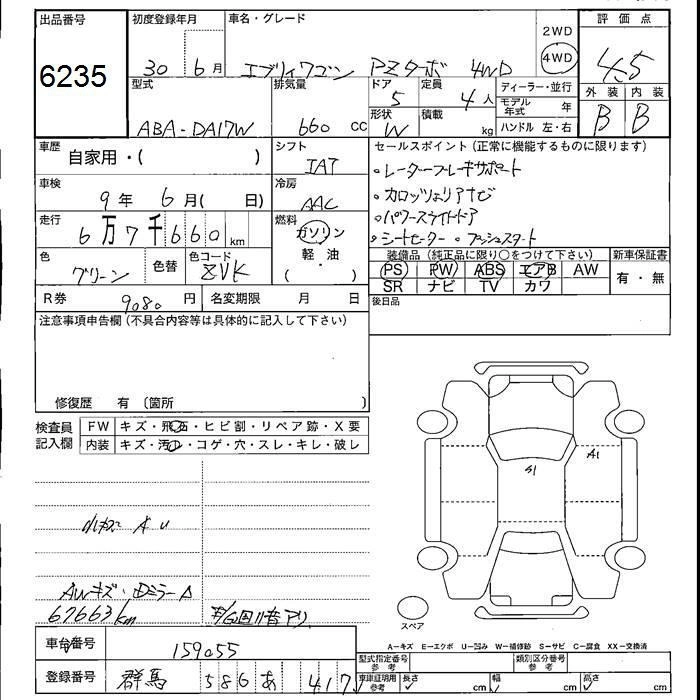 出品番号
6235
初度登録年月
30年 6月
車名・グレード
エブリィワゴン PZターボ 4WD
2WD
4WD
評価点
4.5
型式
ABA-DA17W
排気量
660 cc
ドア
5
定員
4人
形状
W
積載
kg
ディーラー・並行
モデル年式 年
ハンドル 左・右
外装 内装
B B
車歴
自家用・( )
シフト
IAT
車検
9年 6月( 日)
冷房
AAC
走行
6万7千660km
燃料
ガソリン
軽・油
( )
色
グリーン
色替
色コード
ZVK
R券 9080円
名変期限 月 日
セールスポイント(正常に機能するものに限ります)
・レーダーブレーキサポート
・カロッツェリアナビ
・パワースライドドア
・シートヒーター ・プッシュスタート
装備品(純正品に限り○をつけて下さい)
新車保証書
PS PW ABS エアB AW
SR ナビ TV カワ
有・無
後日品
注意事項申告欄(不具合内容等は具体的に記入して下さい)
修復歴 有 〔箇所 〕
検査員記入欄
FW キズ・飛石・ヒビ割・リペア跡・X要
内装 キズ・汚れ・コゲ・穴・スレ・キレ・破レ
小キズ A U
AWキズ・
67663km
S1
A1
スペア
A－キズ E－エクボ U－凹み W－補修跡 S－サビ C－腐食 XX－交換済
車台番号
159055
登録番号
群馬 586 あ 417
型式指定番号 参考
類別区分番号 参考
車庫証明用 参考
長さ cm
幅 cm
高さ cm